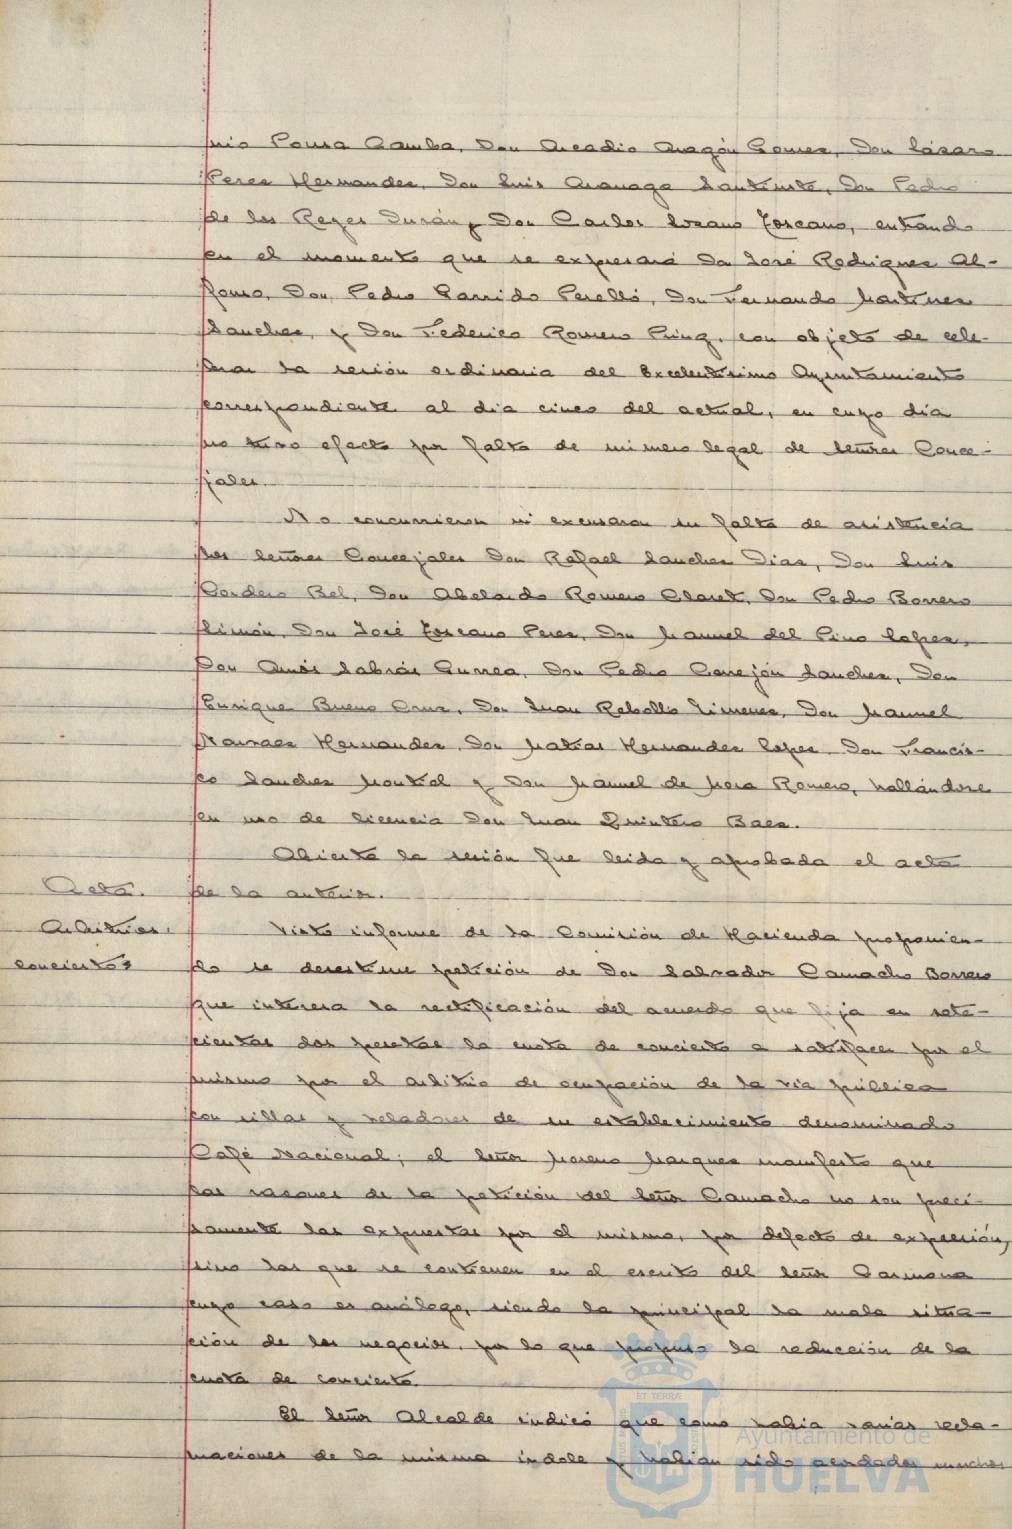 nio Ponsa Gamba, Don Arcadio Aragón Gomez, Don Lázaro
Perez Hernandez, Don Luis Aranaga Santiuste, Don Pedro
de los Reyes Durán y Don Carlos Lozano Toscano, entrando
en el momento que se expresará Dn José Rodriguez Al-
fonso, Don Pedro Garrido Perelló, Don Fernando Martinez
Sanchez, y Don Federico Romero con objeto de cele-
brar la sesión ordinaria del Excelentísimo Ayuntamiento
correspondiente al dia cinco del actual, en cuyo día
no tuvo efecto por falta de número legal de Señores Conce-
jales.
No concurrieron ni excusaron su falta de asistencia
los Señores Concejales Don Rafael Sanchez Diaz, Don Luis
Cordero Bel, Don Abelardo Romero Claret, Don Pedro Borrero
Limón, Don José Toscano Perez, Don Manuel del Pino Lopez,
Don Amós Sabrás Gurrea, Don Pedro Cerrejón Sanchez, Don
Enrique Bueno Cruz, Don Juan Rebollo Jimenez, Don Manuel
Narvaez Hernandez, Don Matias Hernandez Lopez, Don Francis-
co Sanchez Montiel y Don Manuel de Mora Romero, hallándose
en uso de licencia Don Juan Quintero Baez.
Abierta la sesión fue leida y aprobada el acta
Acta. de la anterior.
Arbitrios. Visto informe de la Comisión de Hacienda proponien-
conciertos do se desestime petición de Don Salvador Camacho Borrero
que interesa la rectificación del acuerdo que fija en sete-
cientas dos pesetas la cuota de concierto a satisfacer por el
mismo por el arbitrio de ocupación de la via pública
con sillas y veladores de su establecimiento denominado
Café Nacional; el Señor Moreno Marquez manifestó que
las razones de la petición del Señor Camacho no son preci-
samente las expuestas por el mismo, por defecto de expresión,
sino las que se contienen en el escrito del Señor Carmona
cuyo caso es análogo, siendo la principal la mala situa-
ción de los negocios, por lo que propuso la reducción de la
cuota de concierto.
El Señor Alcalde indicó que como habia varias recla-
maciones de la misma indole y habian sido acordados muchos
ET TERRÆ
Ayuntamiento de
HUELVA